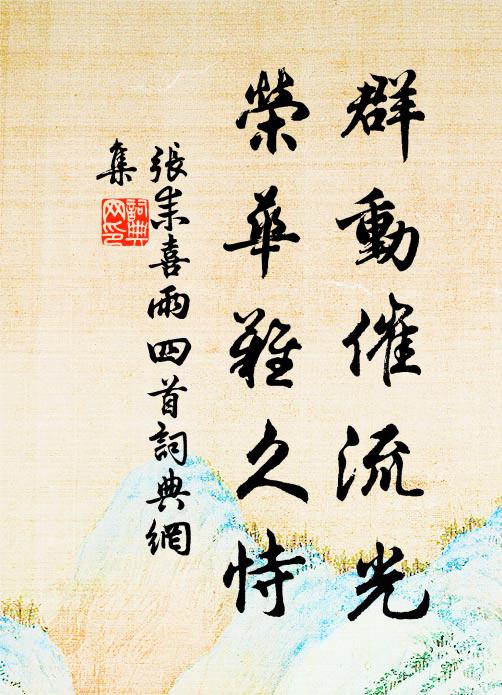 群動催流光
榮華難久恃
張耒喜雨四首詞典網
集
詞典網印